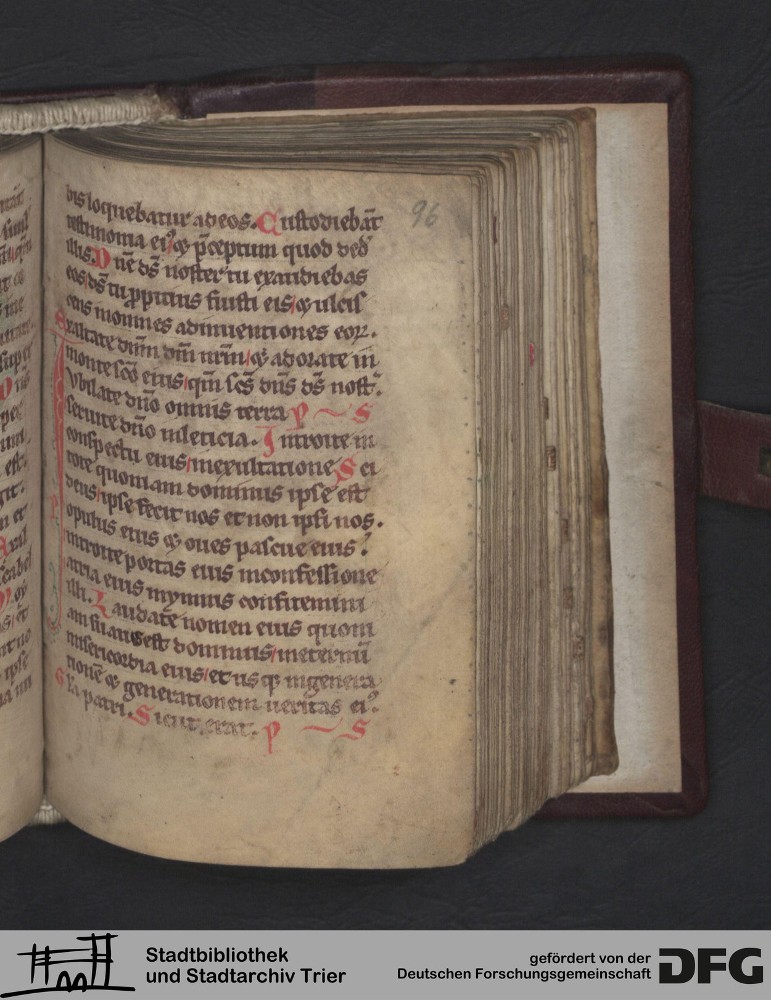 96
bis loquebatur ad eos. Custodiebāt
testimonia ei⁹ ⁊ p̄ceptum quod ded̄
illis. Dñe d̄s noster tu exaudiebas
eos d̄s tu ꝓpitius fuisti eis / ⁊ ulcis
cens in omnes adinuentiones eoꝝ.
Exaltate dñm dm̄ nr̄m / ⁊ adorate in
monte sc̄o eius / qm̄ sc̄s dñs d̄s nost̄.
Iubilate dño omnis terra p s
seruite dño in leticia. Introite in
conspectu eius / in exultatione Sci
tote quoniam dominus ipse est
deus / ipse fecit nos et non ipsi nos.
opulus eius ⁊ oues pascue eius
introite portas eius in confessione
atria eius in ymnis confitemini
illi. Laudate nomen eius quoni
am suauis est dominus / in eternū
misericordia eius / et usqꝫ in genera
tionē ⁊ generationem ueritas ei⁹.
Gl̄a patri. Sicut erat. p s
Stadtbibliothek
und Stadtarchiv Trier
gefördert von der
Deutschen Forschungsgemeinschaft
DFG